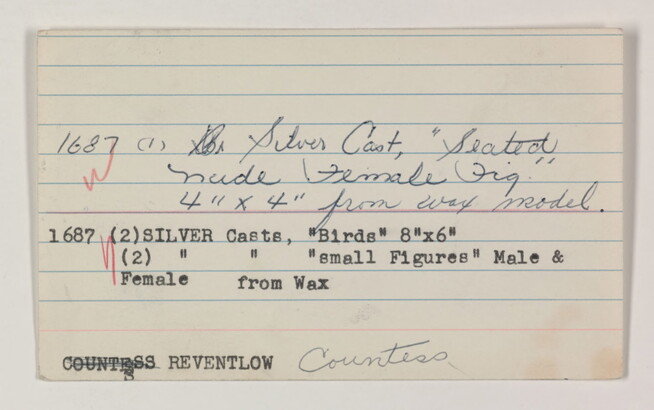 1687 (1) Silver Cast, "Seated
nude Female Fig."
4" x 4" from wax model.
1687 (2) SILVER Casts, "Birds" 8"x6"
(2) " " "small Figures" Male &
Female from Wax
COUNTESS REVENTLOW Countess
S